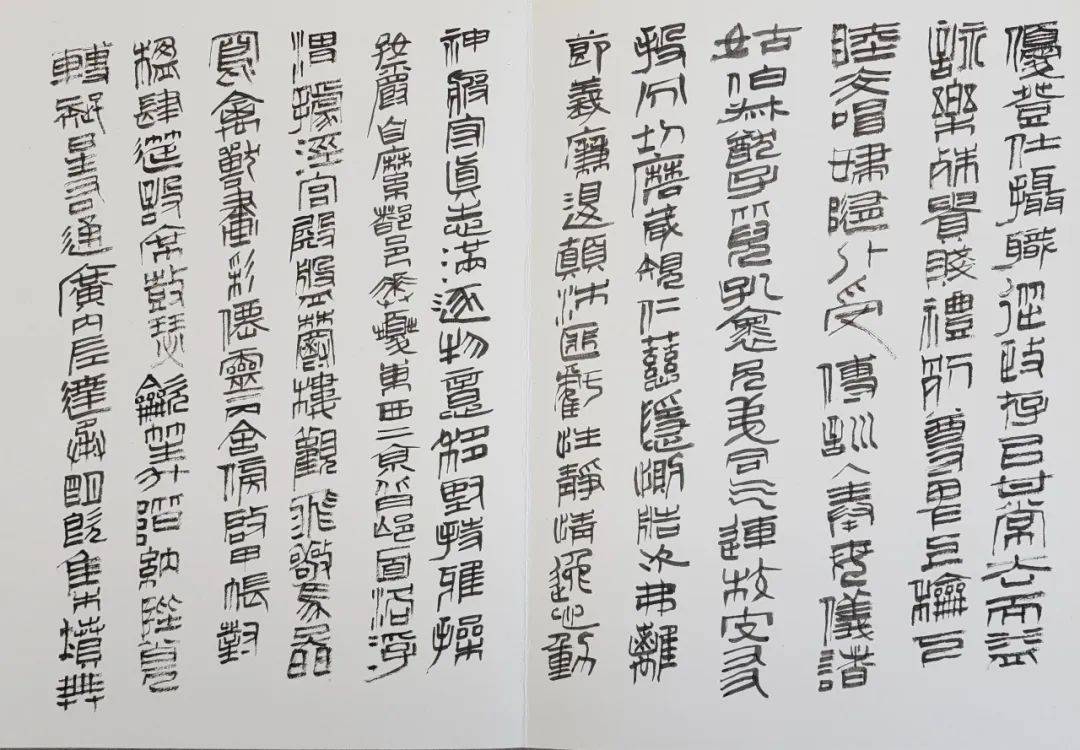 優登仕攝職從政存以甘棠去而益
詠樂殊貴賤禮別尊卑上龢下
睦夫唱婦隨外受傅訓入奉母儀諸
姑伯叔猶子比兒孔懷兄弟同氣連枝交友
投分切磨箴規仁慈隱惻造次弗離
節義廉退顛沛匪虧性靜情逸心動
神疲守真志滿逐物意移堅持雅操
好爵自縻都邑華夏東西二京背邙面洛浮
渭據涇宮殿盤鬱樓觀飛驚圖
寫禽獸畫彩僊靈丙舍傍啟甲帳對
楹肆筵設席鼓瑟龡笙升階納陛弁
轉疑星右通廣內左達承明既集墳典